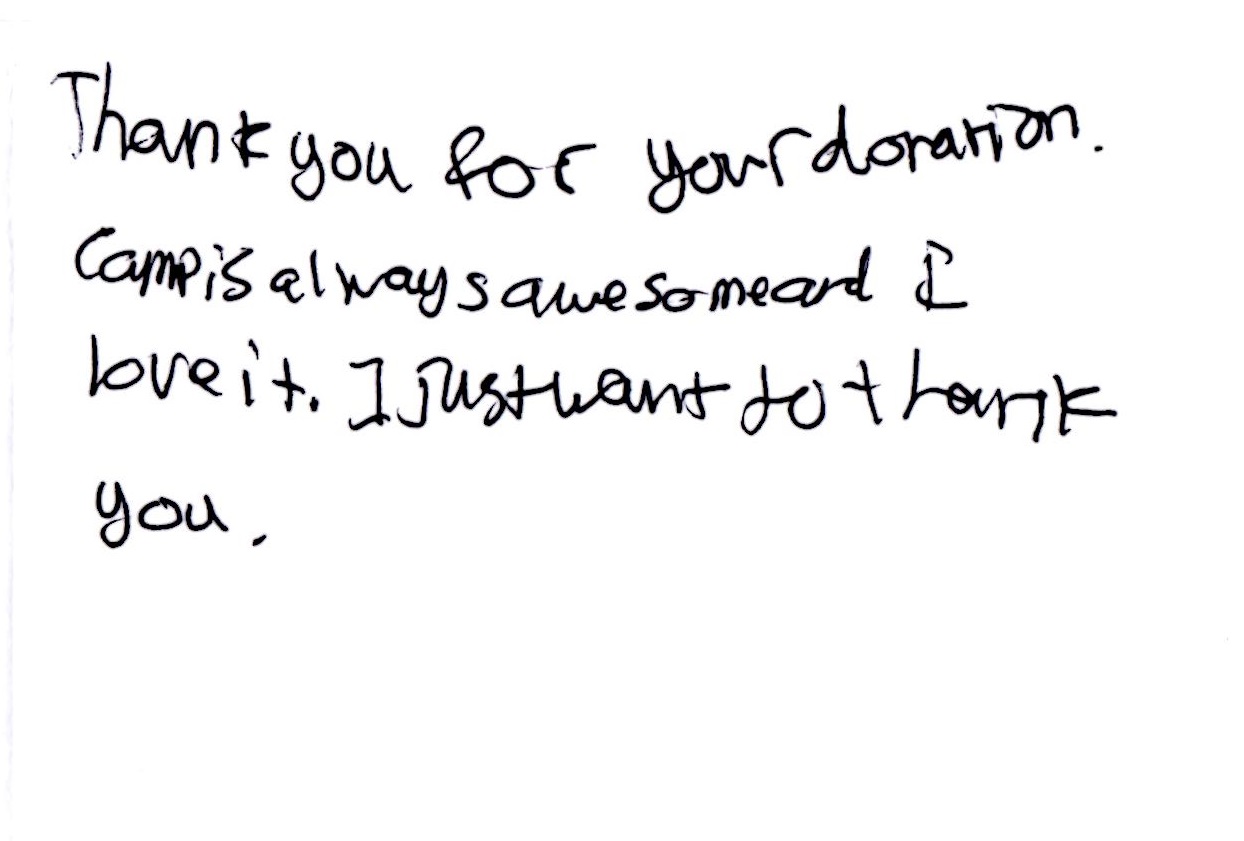 Thank you for your donation.
Camp is always awesome and I
love it. I just want to thank
you.